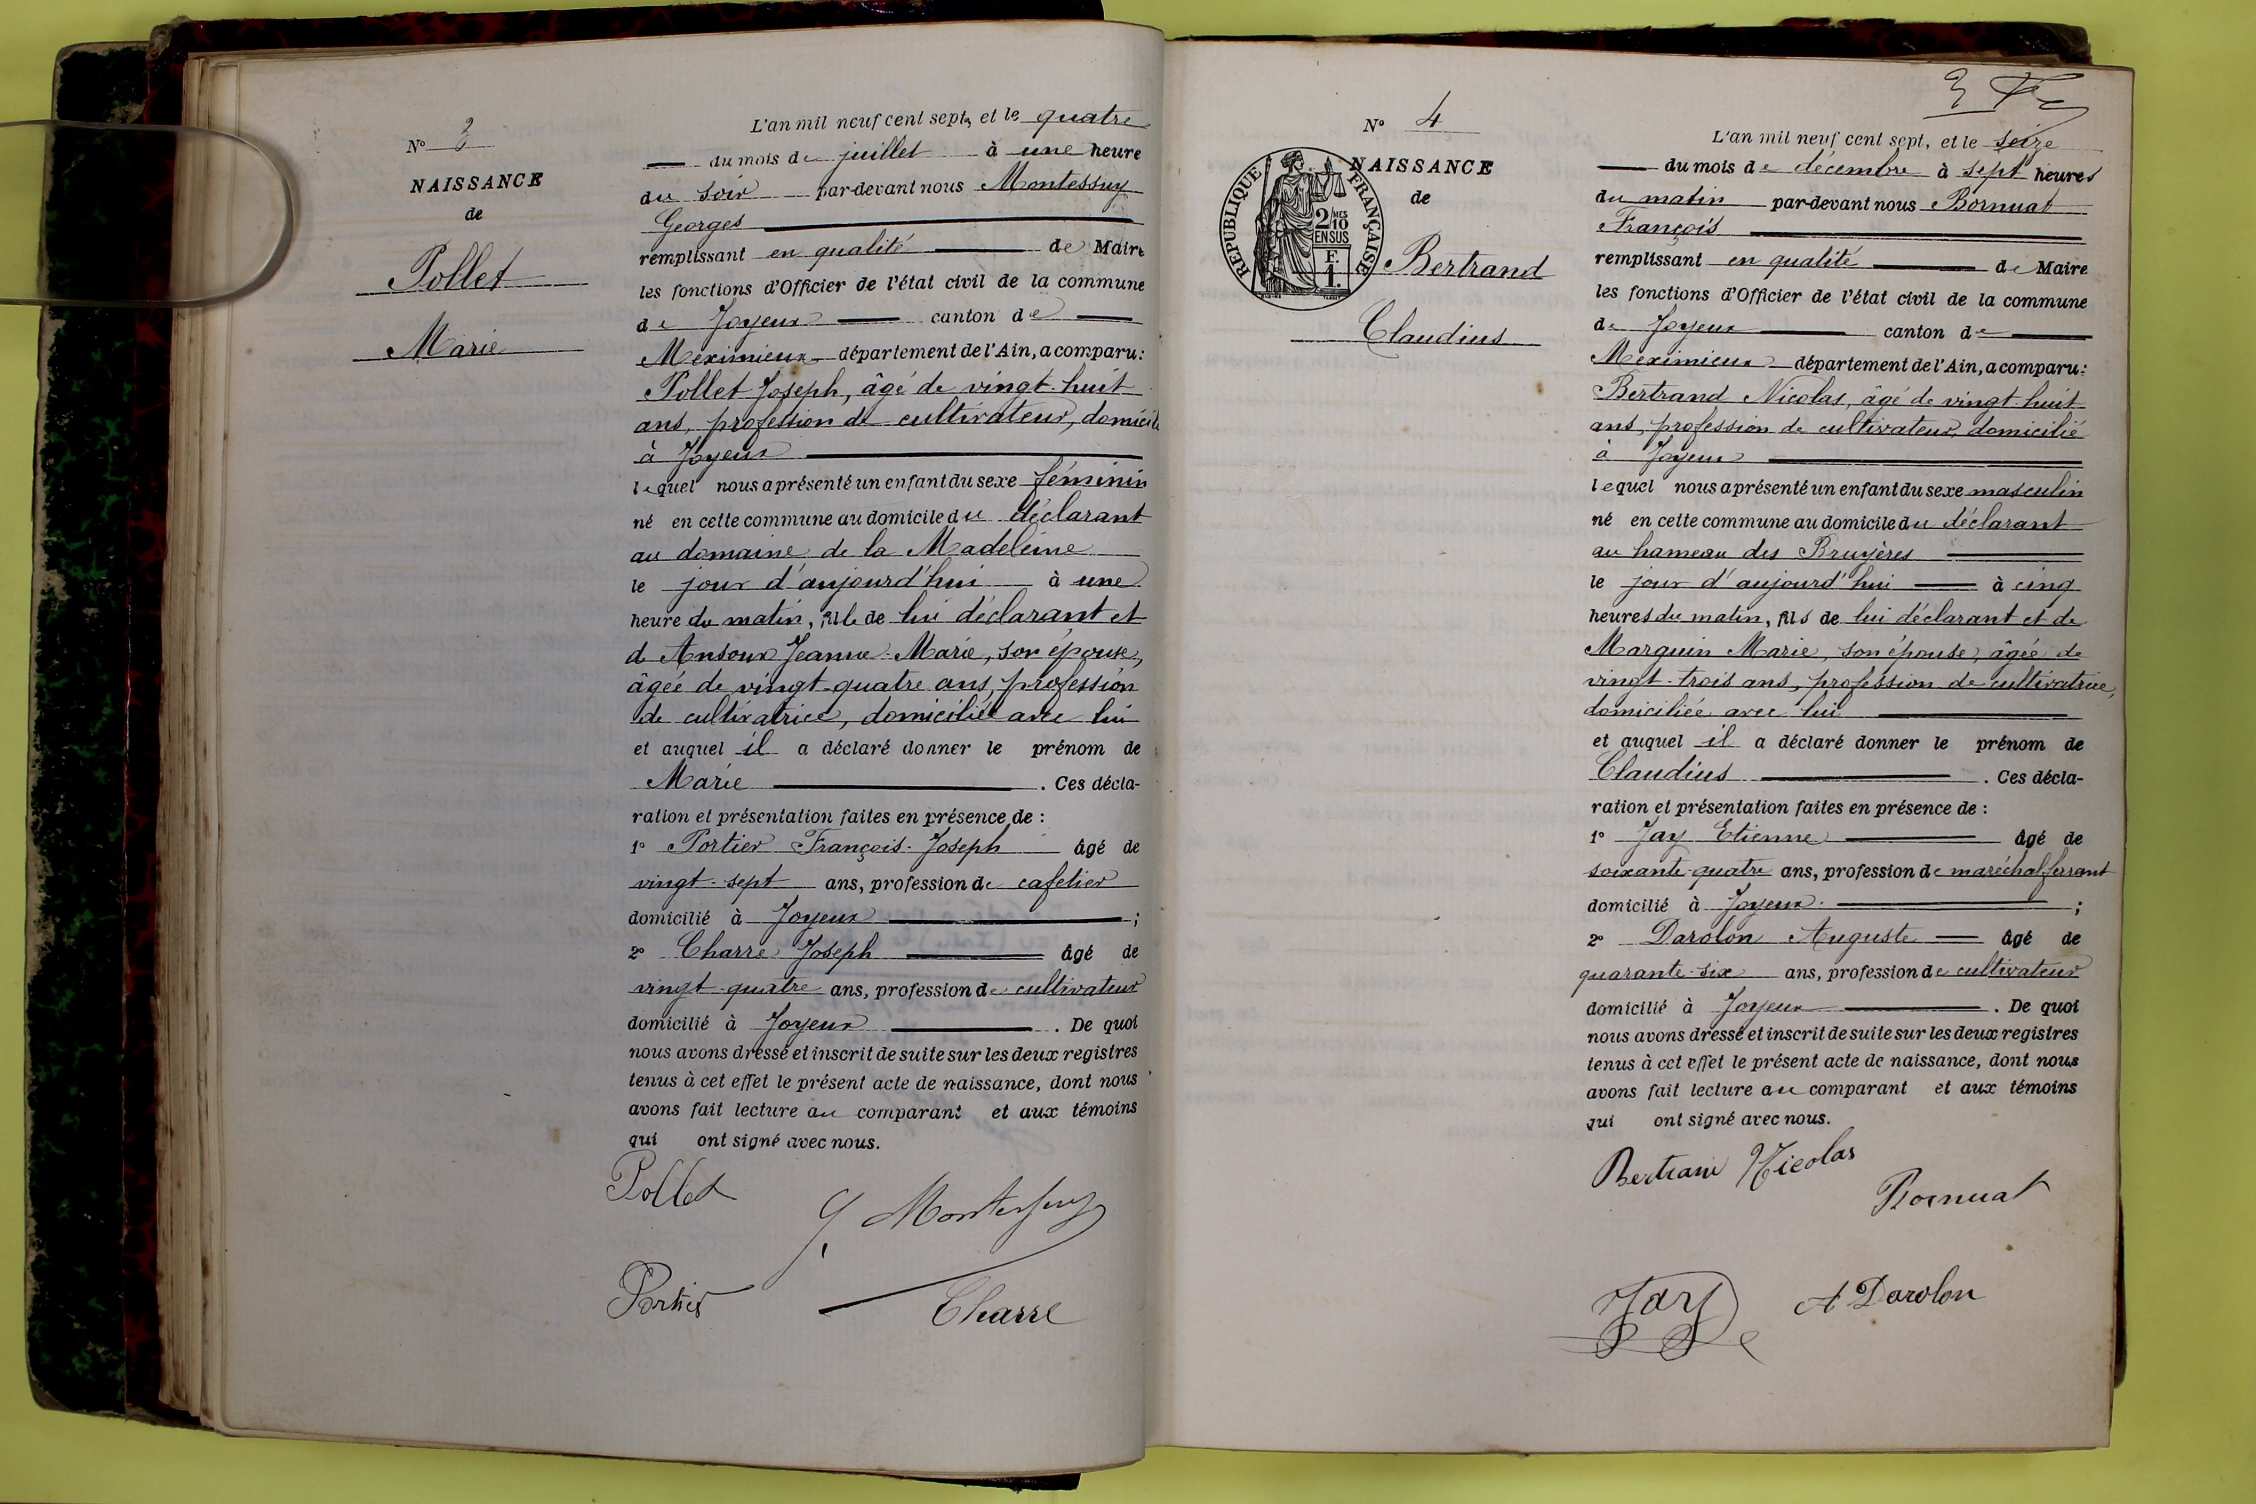 N° 3
NAISSANCE
de
Pollet
Marie
L'an mil neuf cent sept, et le quatre
du mois de juillet à une heure
du soir par-devant nous Montessuy
Georges
remplissant en qualité de Maire
les fonctions d'Officier de l'état civil de la commune
de Joyeux canton de
Meximieux département de l'Ain, a comparu:
Pollet Joseph, âgé de vingt-huit
ans, profession de cultivateur, domicilié
à Joyeux
lequel nous a présenté un enfant du sexe féminin
né en cette commune au domicile du déclarant
au domaine de la Madeleine
le jour d'aujourd'hui à une
heure du matin, fille de lui déclarant et
de Ansoux Jeanne-Marie, son épouse,
âgée de vingt-quatre ans, profession
de cultivatrice, domiciliée avec lui
et auquel il a déclaré donner le prénom de
Marie . Ces décla-
ration et présentation faites en présence de :
1° Portier François-Joseph âgé de
vingt-sept ans, profession de cafetier
domicilié à Joyeux ;
2° Charre Joseph âgé de
vingt-quatre ans, profession de cultivateur
domicilié à Joyeux . De quoi
nous avons dressé et inscrit de suite sur les deux registres
tenus à cet effet le présent acte de naissance, dont nous
avons fait lecture au comparant et aux témoins
qui ont signé avec nous.
Pollet
G. Montessuy
Portier
Charre
N° 4
NAISSANCE
de
REPUBLIQUE FRANÇAISE
2/10 MES
EN SUS
F.
1.
Bertrand
Claudius
L'an mil neuf cent sept, et le seize
du mois de décembre à sept heures
du matin par-devant nous Bornuat
François
remplissant en qualité de Maire
les fonctions d'Officier de l'état civil de la commune
de Joyeux canton de
Meximieux département de l'Ain, a comparu:
Bertrand Nicolas, âgé de vingt-huit
ans, profession de cultivateur, domicilié
à Joyeux
lequel nous a présenté un enfant du sexe masculin
né en cette commune au domicile du déclarant
au hameau des Bruyères
le jour d'aujourd'hui à cinq
heures du matin, fils de lui déclarant et de
Marguin Marie, son épouse, âgée de
vingt-trois ans, profession de cultivatrice,
domiciliée avec lui
et auquel il a déclaré donner le prénom de
Claudius . Ces décla-
ration et présentation faites en présence de :
1° Jay Etienne âgé de
soixante-quatre ans, profession de maréchal-ferrant
domicilié à Joyeux ;
2° Darolon Auguste âgé de
quarante-six ans, profession de cultivateur
domicilié à Joyeux . De quoi
nous avons dressé et inscrit de suite sur les deux registres
tenus à cet effet le présent acte de naissance, dont nous
avons fait lecture au comparant et aux témoins
qui ont signé avec nous.
Bertrand Nicolas
Bornuat
Jay
A Darolon